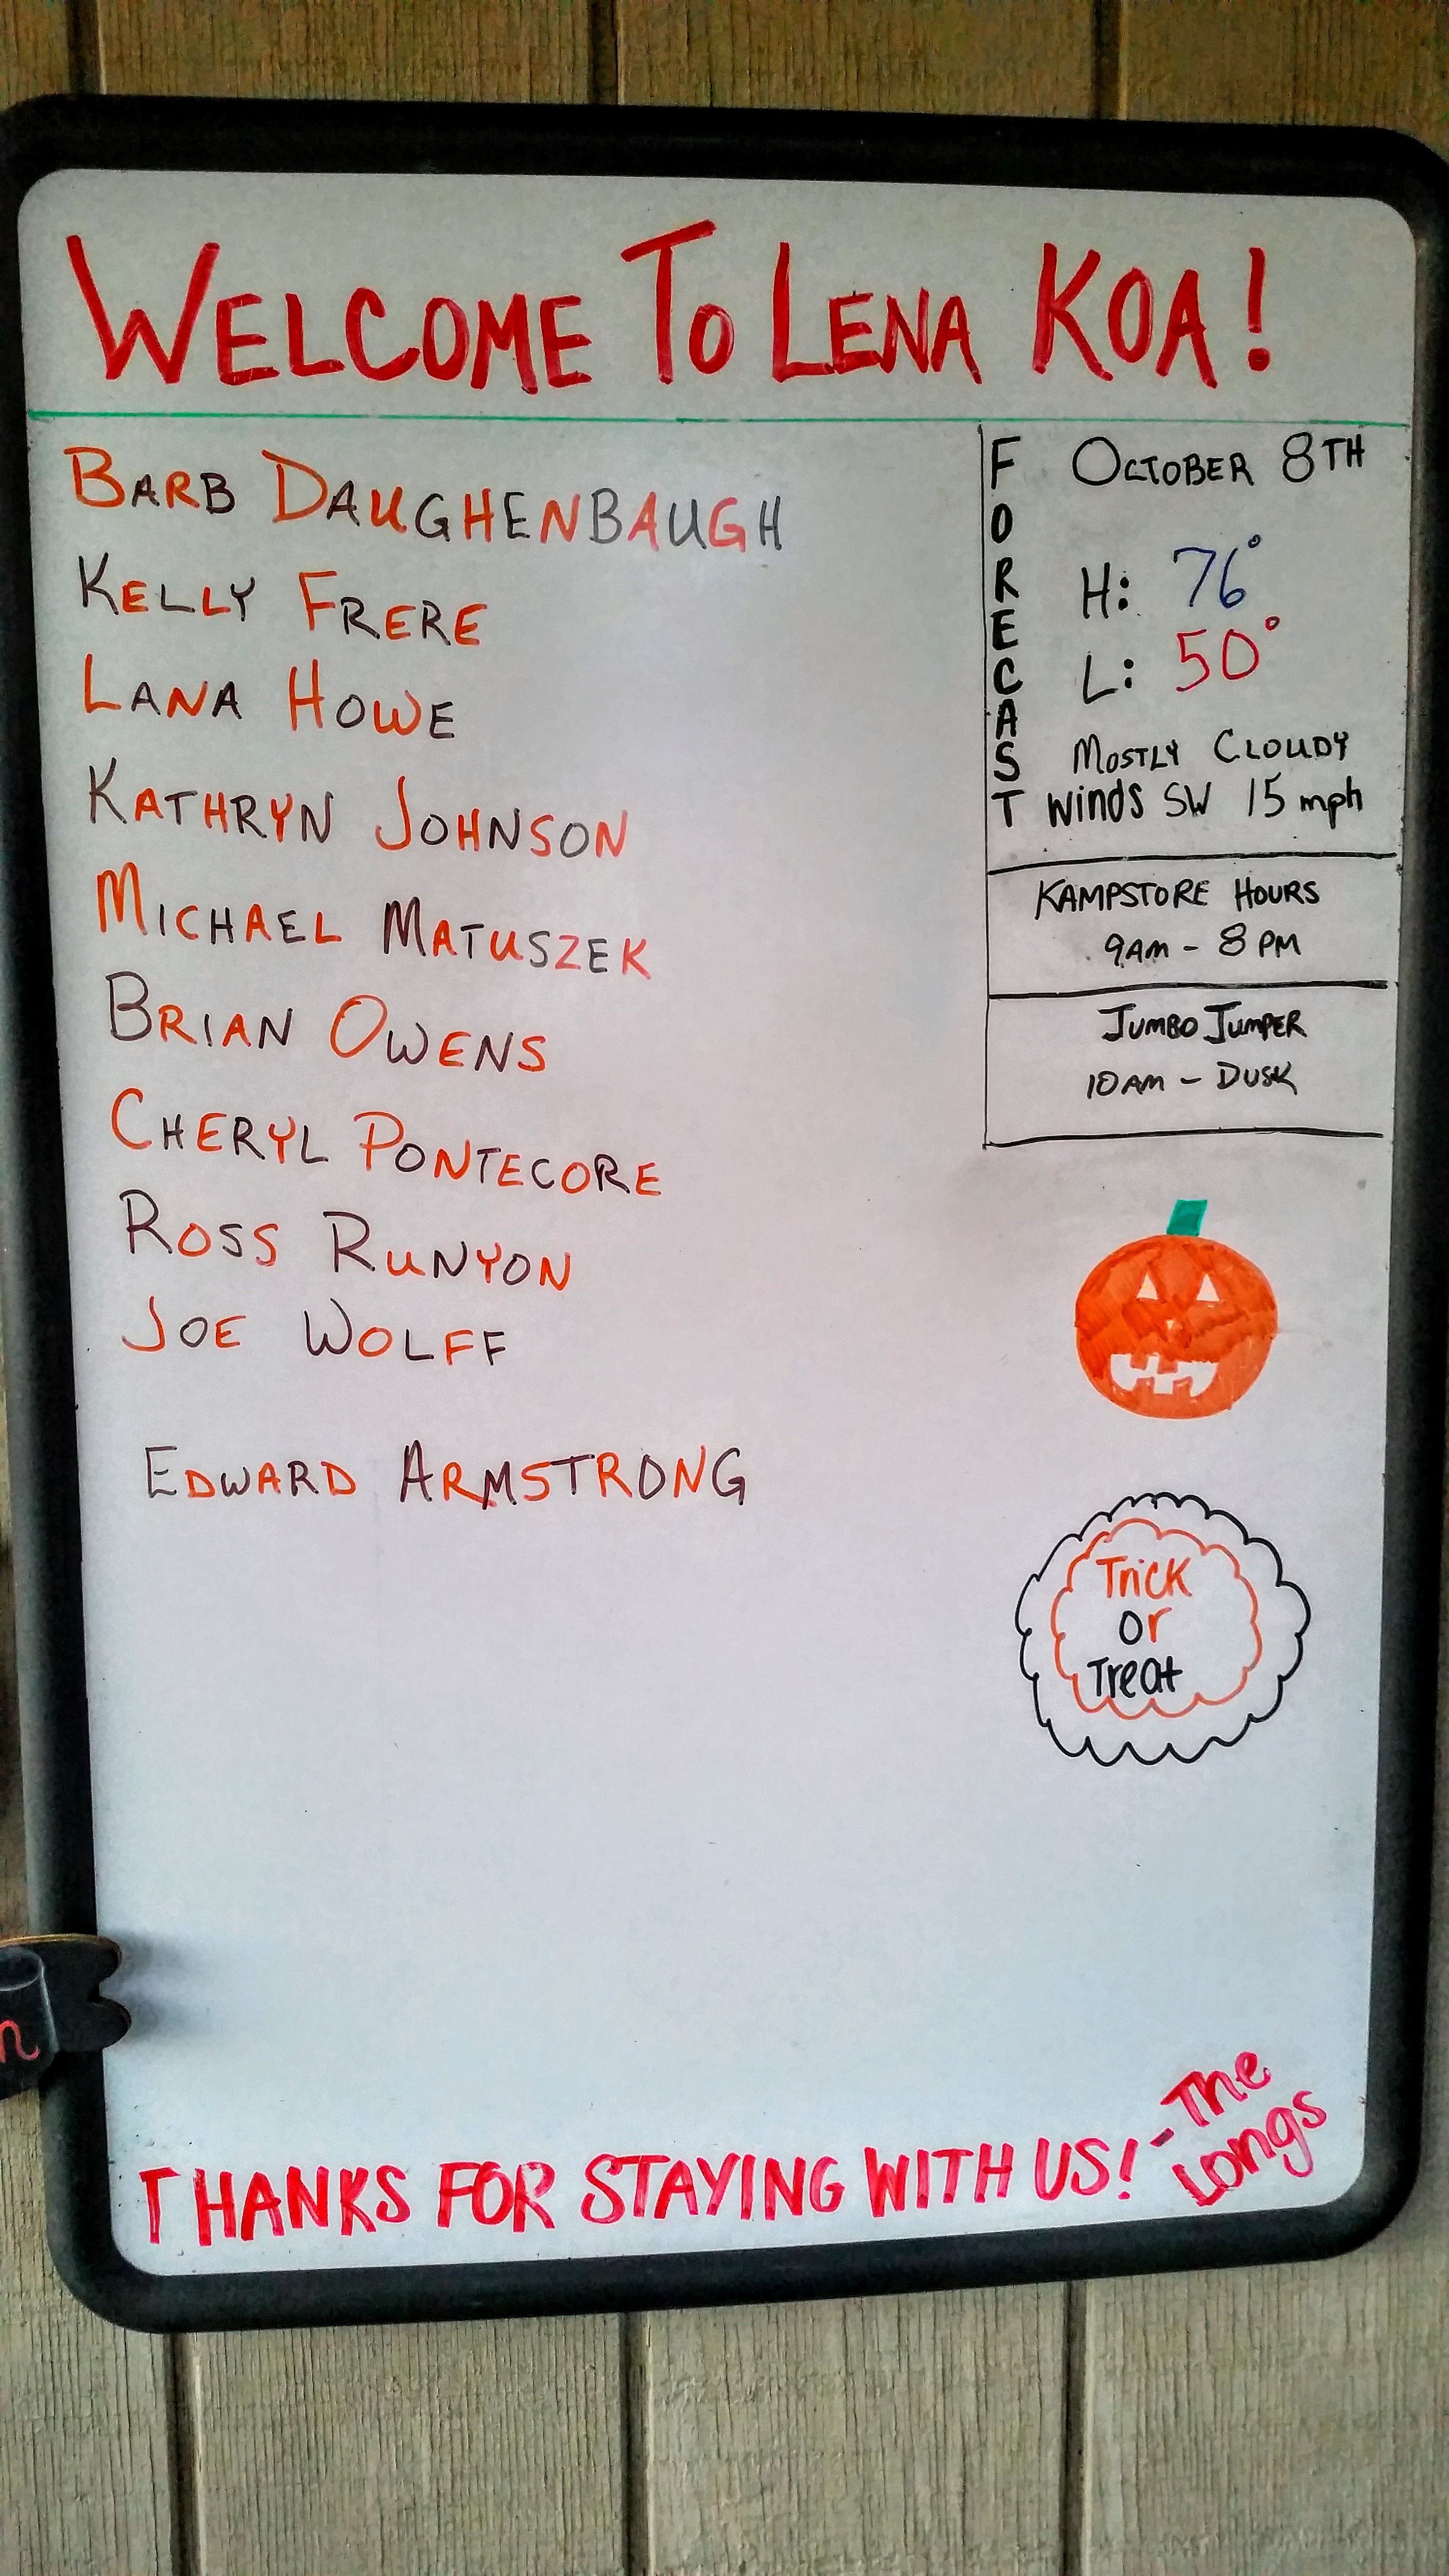 WELCOME TO LENA KOA!
BARB DAUGHENBAUGH
KELLY FRERE
LANA HOWE
KATHRYN JOHNSON
MICHAEL MATUSZEK
BRIAN OWENS
CHERYL PONTECORE
ROSS RUNYON
JOE WOLFF
EDWARD ARMSTRONG
FORECAST
OCTOBER 8TH
H: 76°
L: 50°
MOSTLY CLOUDY
WINDS SW 15 mph
KAMPSTORE HOURS
9AM - 8PM
JUMBO JUMPER
10AM - DUSK
Trick
or
Treat
THANKS FOR STAYING WITH US! - The
Longs
n